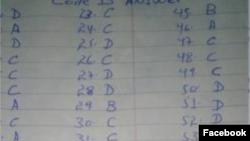 Code B Answer
D 23. C 45 B
A 24. C 46. A
D 25. D 47 C
C 26. C 48. C
C 27. D 49 C
C 28. D 50. D
A 29 B 51. D
C 30. C 52. D
A 31. C 53
Facebook